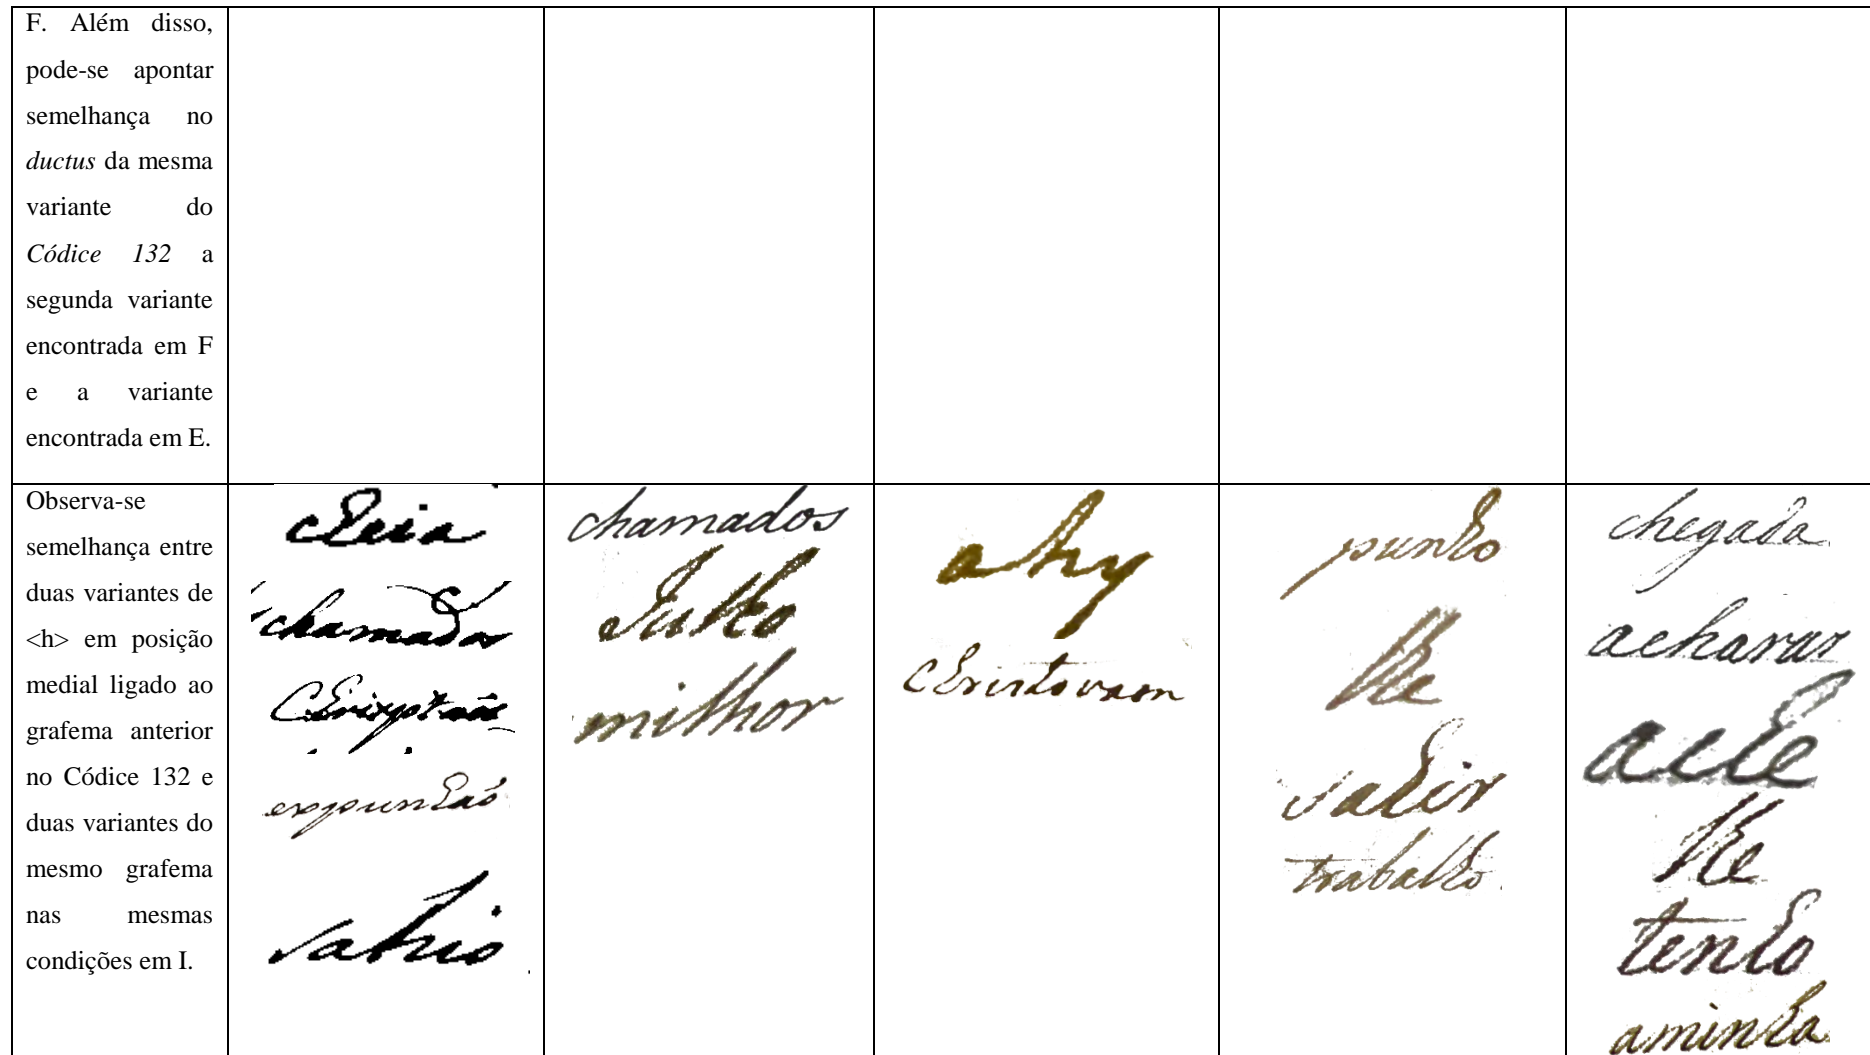 F. Além disso,
pode-se apontar
semelhança no
ductus da mesma
variante do
Códice 132 a
segunda variante
encontrada em F
e a variante
encontrada em E.
Observa-se
semelhança entre
duas variantes de
<h> em posição
medial ligado ao
grafema anterior
no Códice 132 e
duas variantes do
mesmo grafema
nas mesmas
condições em I.
cheia
chamados
expunhaõ
sahio
chamados
Julho
milhor
ahy
Christovam
punho
lhe
sahir
trabalho
chegada
acharar
ache
lhe
tenho
aminha